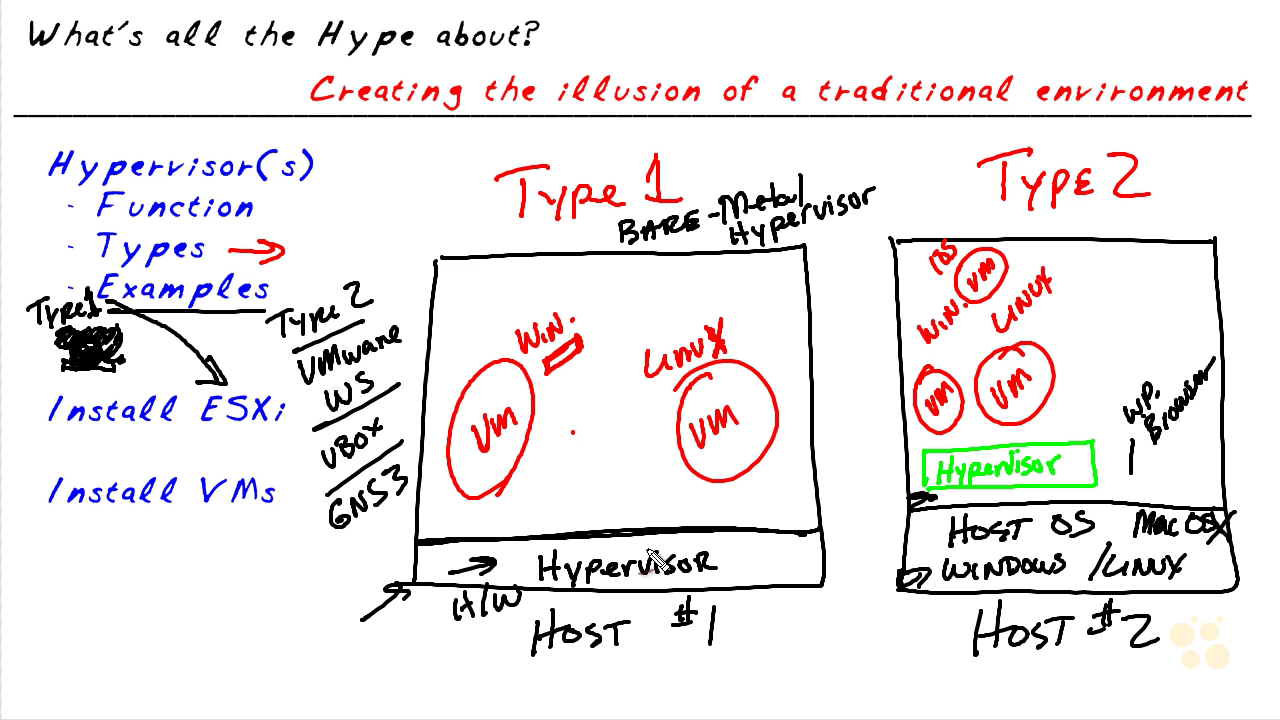 What's all the Hype about?
Creating the illusion of a traditional environment
Hypervisor(s)
- Function
- Types
- Examples
Type1
Install ESXi
Install VMs
Type 2
VMware
WS
VBox
GNS3
Type 1
BARE-Metal
Hypervisor
WiN.
LiNUX
VM
VM
Hypervisor
H/W
HOST #1
TypE 2
VM
WiN.
LiNUX
VM
VM
W.P.
Browser
Hypervisor
HOST OS Mac OSX
WiNDOWS /LiNUX
HOST #2